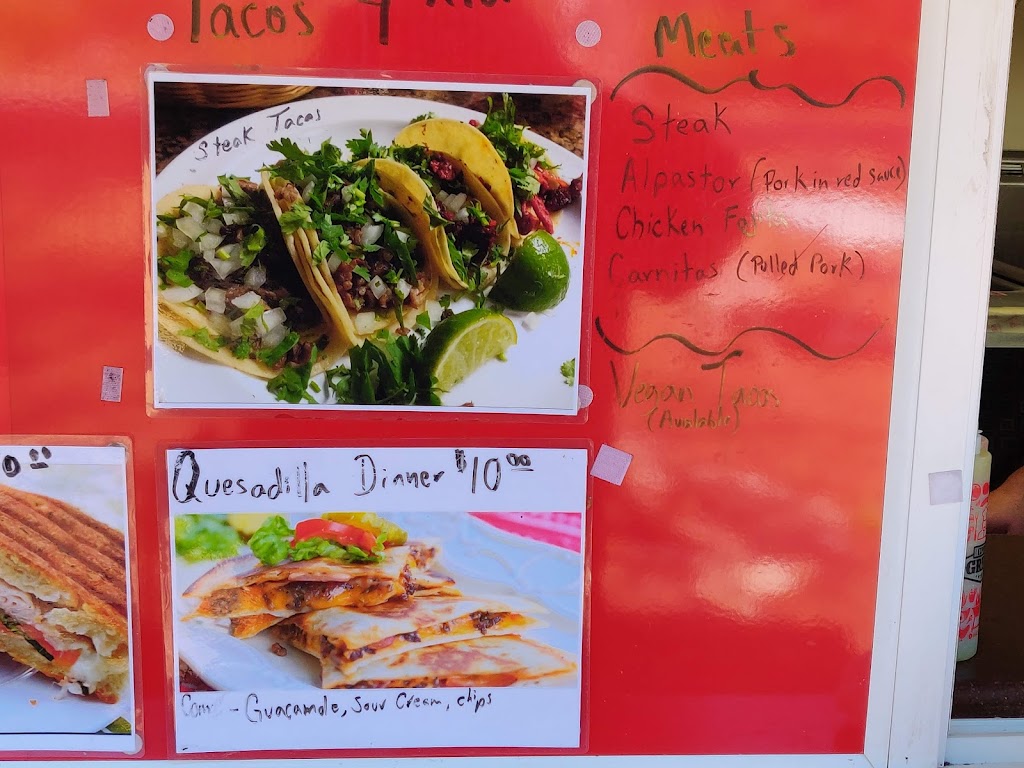 Tacos
Meats
Steak Tacos
Steak
Alpastor (Pork in red sauce)
Chicken
Carnitas (Pulled Pork)
Vegan Tacos
(Available)
Quesadilla Dinner $10.00
- Guacamole, Sour Cream, chips